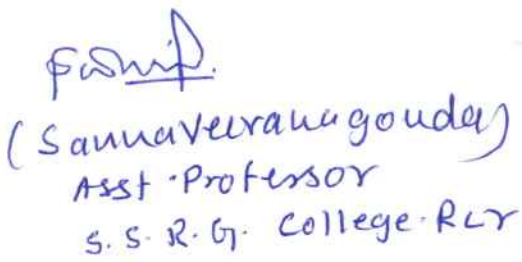 (Sannaveeranagouda)
Asst. Professor
S. S. R. G. College. Rcr